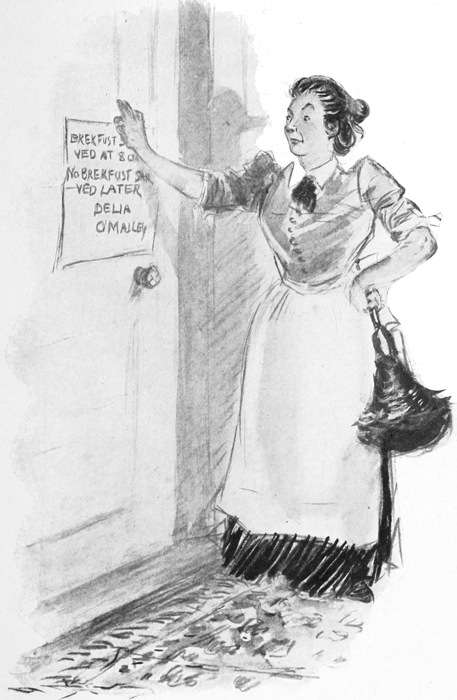 BREKFUST
VED AT 8
NO BREKFUST
-VED LATER
DELIA
O'MALLEY